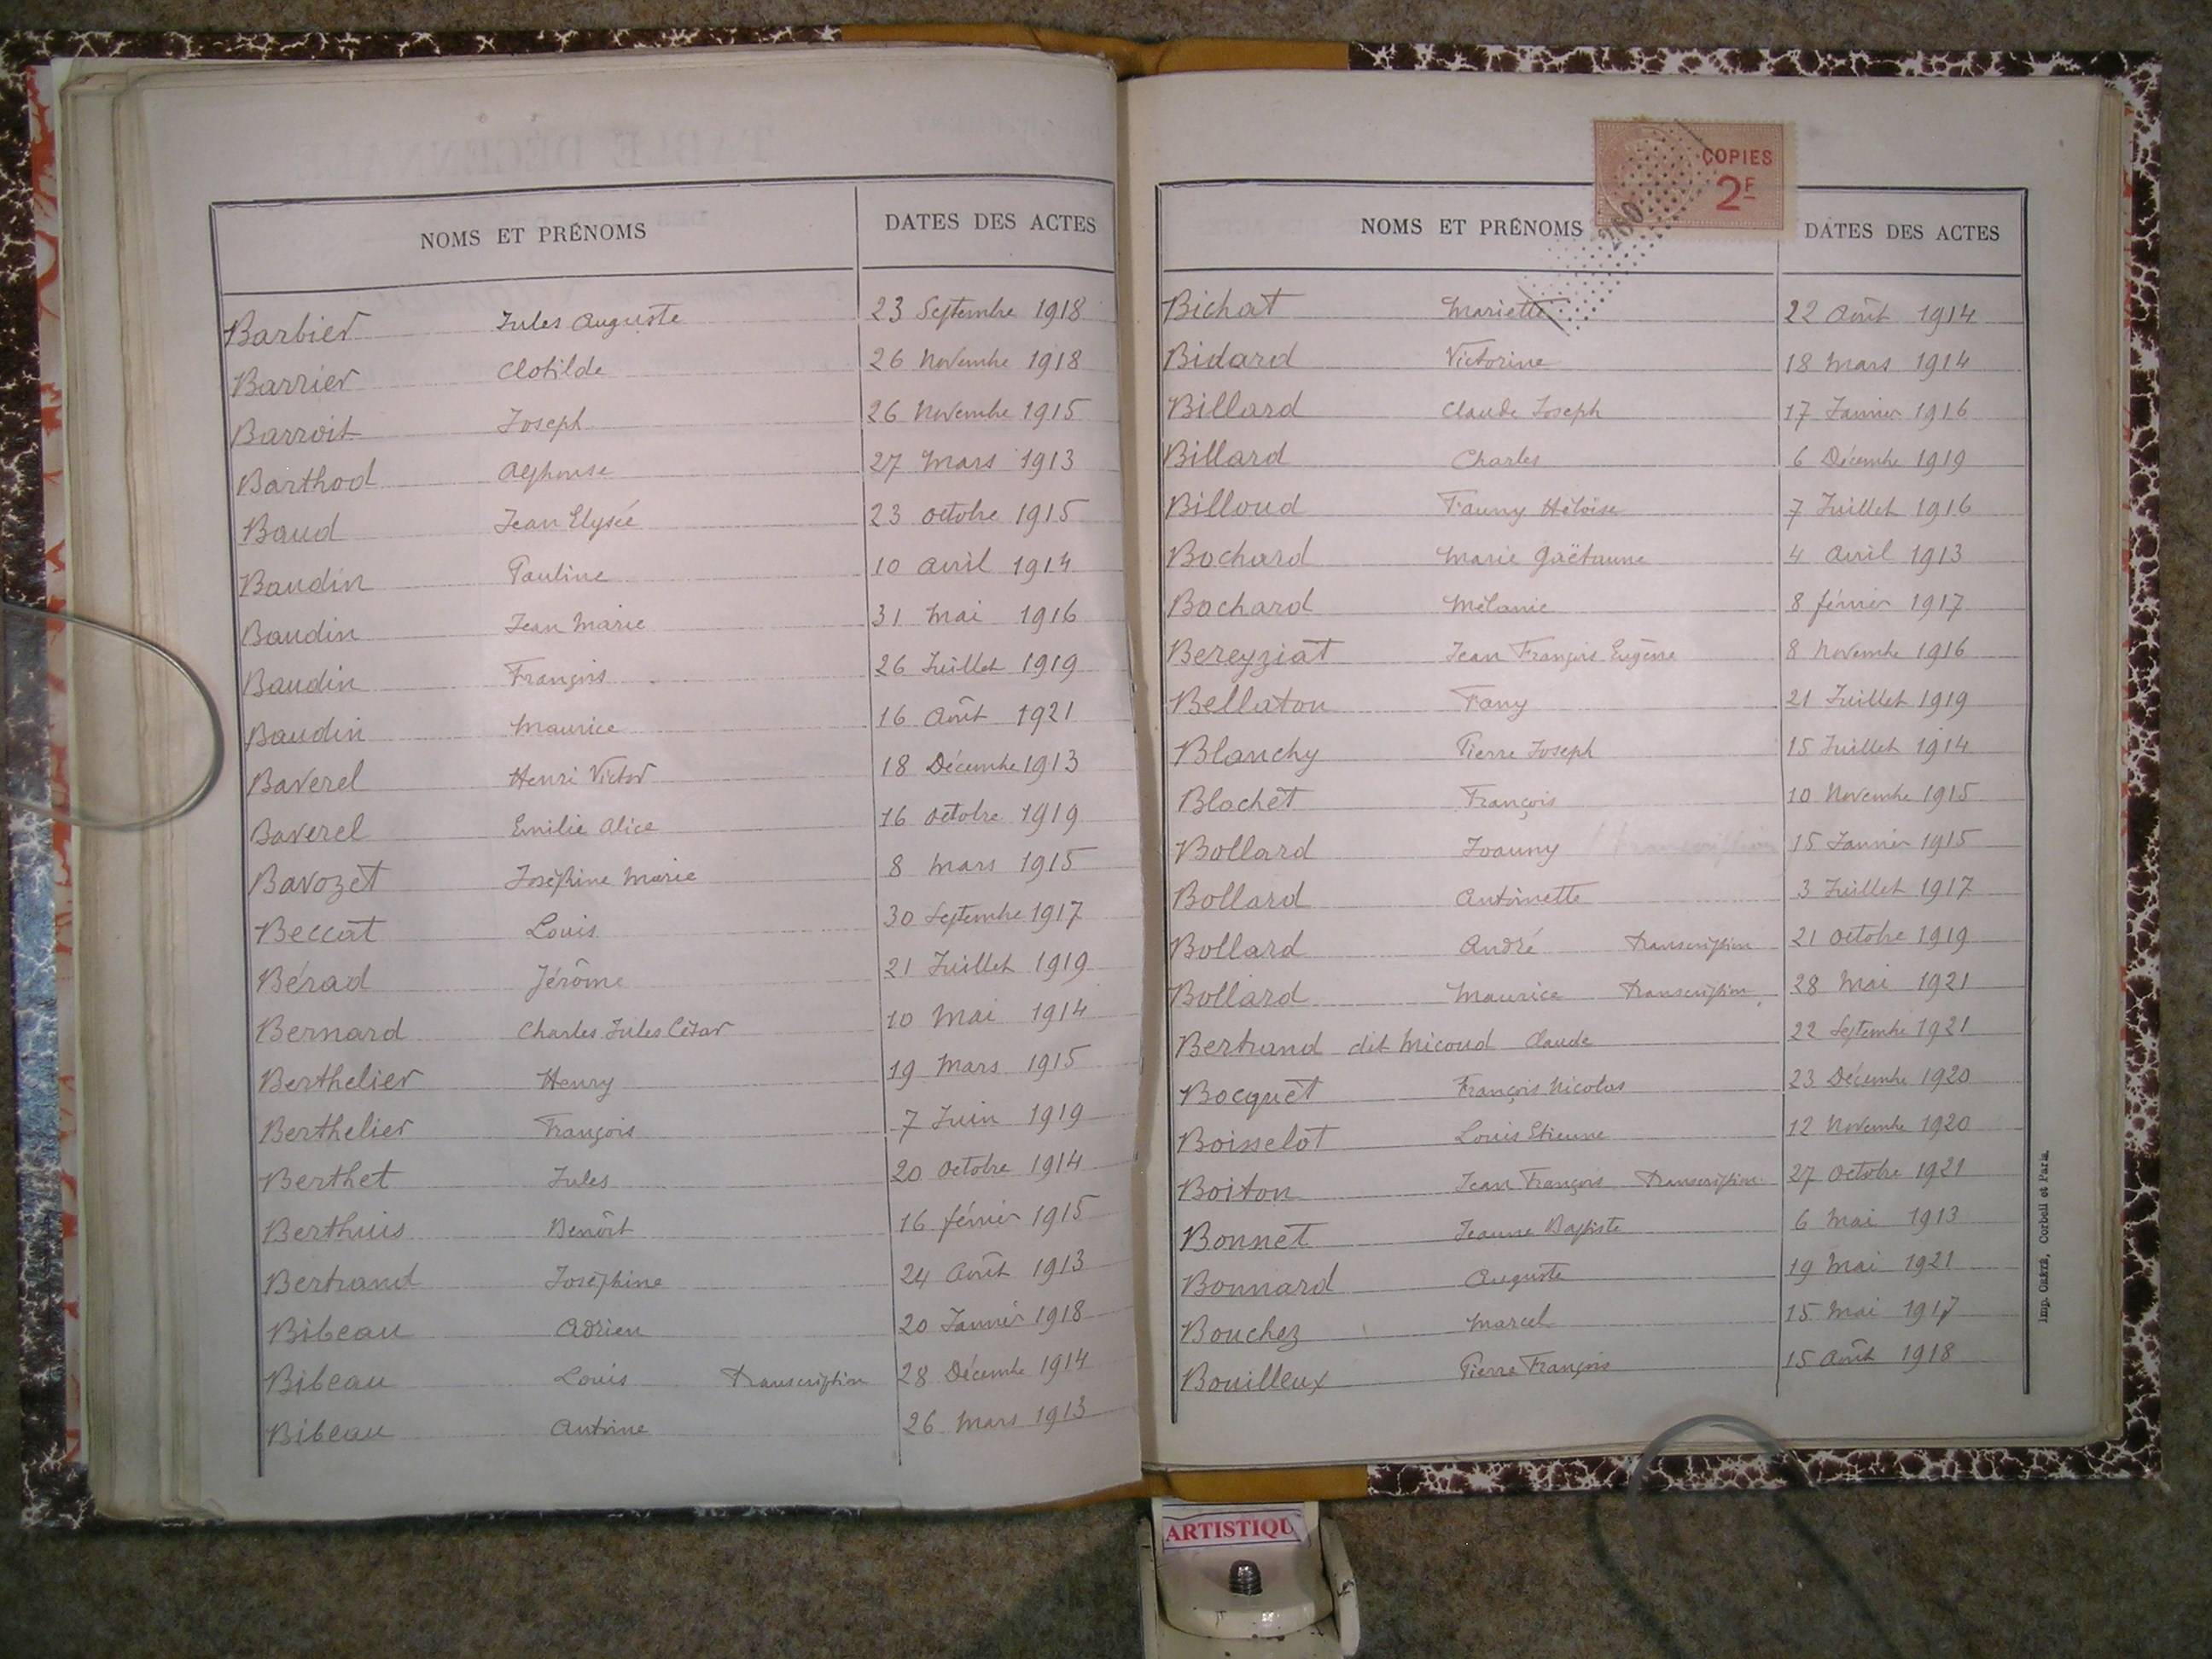 NOMS ET PRÉNOMS DATES DES ACTES
Barbier Jules Auguste 23 Septembre 1918
Barrier Clotilde 26 Novembre 1918
Barroit Joseph 26 Novembre 1915
Barthod Alphonse 27 Mars 1913
Baud Jean Elysée 23 octobre 1915
Baudin Pauline 10 avril 1914
Baudin Jean Marie 31 Mai 1916
Baudin François 26 Juillet 1919
Baudin Maurice 16 Août 1921
Baverel Henri Victor 18 Décembre 1913
Baverel Emilie Alice 16 octobre 1919
Bavozet Joséphine Marie 8 Mars 1915
Beccat Louis 30 Septembre 1917
Bérad Jérôme 21 Juillet 1919
Bernard Charles Jules César 10 Mai 1914
Berthelier Henry 19 Mars 1915
Berthelier François 7 Juin 1919
Berthet Jules 20 octobre 1914
Berthuis Benoît 16 février 1915
Bertrand Joséphine 24 Août 1913
Bibeau Adrien 20 Janvier 1918
Bibeau Louis Transcription 28 Décembre 1914
Bibeau Antoine 26 Mars 1913
COPIES
2F
260
NOMS ET PRÉNOMS DATES DES ACTES
Bichat Mariette 22 Août 1914
Bidard Victorine 18 Mars 1914
Billard Claude Joseph 17 Janvier 1916
Billard Charles 6 Décembre 1919
Billoud Fanny Héloïse 7 Juillet 1916
Bochard Marie Gaëtanne 4 avril 1913
Bochard Mélanie 8 février 1917
Bereyziat Jean François Eugène 8 Novembre 1916
Bellaton Fany 21 Juillet 1919
Blanchy Pierre Joseph 15 Juillet 1914
Blochet François 10 Novembre 1915
Bollard Joanny 15 Janvier 1915
Bollard Antoinette 3 Juillet 1917
Bollard André Transcription 21 octobre 1919
Bollard Maurice Transcription 28 Mai 1921
Bertrand dit Micoud Claude 22 Septembre 1921
Bocquet François Nicolas 23 Décembre 1920
Boisselot Louis Etienne 12 Novembre 1920
Boiton Jean François Transcription 27 Octobre 1921
Bonnet Jeanne Baptiste 6 Mai 1913
Bonnard Auguste 19 Mai 1921
Bouchez Marcel 15 Mai 1917
Bouilleux Pierre François 15 Août 1918
Imp. CRÉTÉ, Corbeil et Paris.
ARTISTIQU